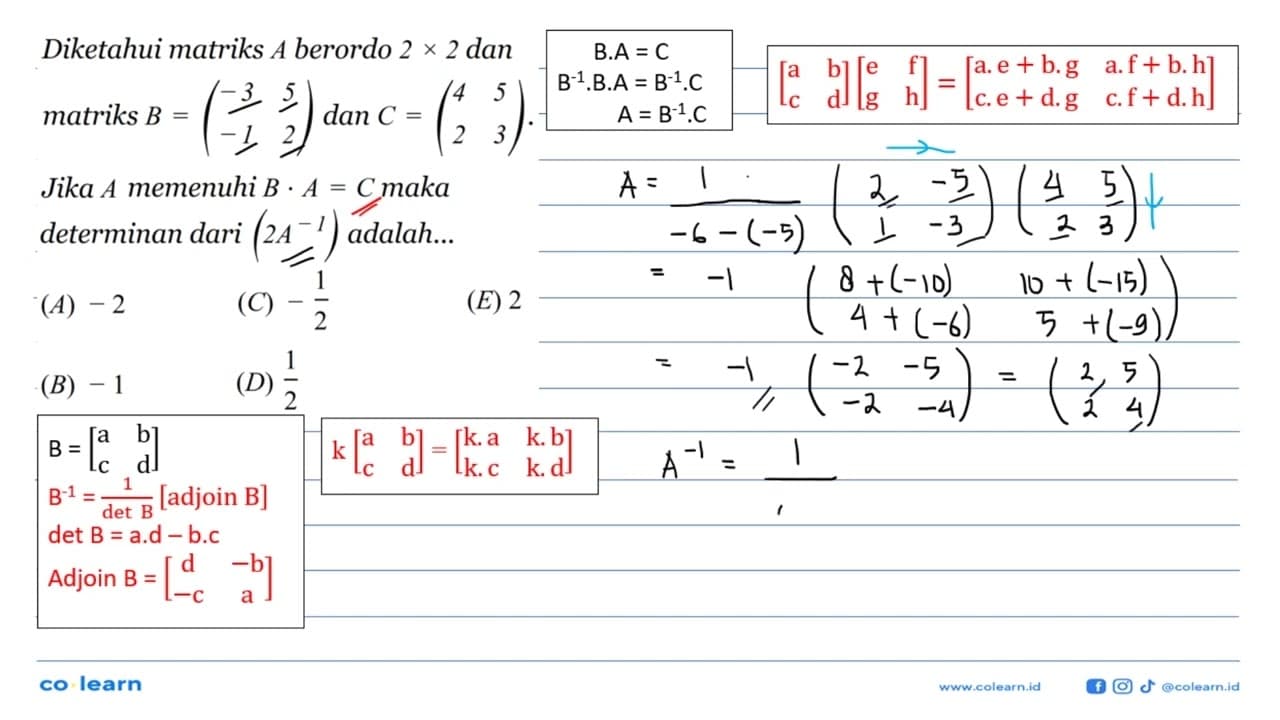 Diketahui matriks A berordo 2 × 2 dan
matriks B = (−3 5
−1 2) dan C = (4 5
2 3).
Jika A memenuhi B · A = C maka
determinan dari (2A⁻¹) adalah...
(A) − 2
(C) − 1/2
(E) 2
(B) − 1
(D) 1/2
B.A = C
B⁻¹.B.A = B⁻¹.C
A = B⁻¹.C
[a b
c d] [e f
g h] = [a. e + b. g a. f + b. h
c. e + d. g c. f + d. h]
A = 1/(−6 − (−5)) (2 −5
1 −3) (4 5
2 3)
= −1 (8 + (−10) 10 + (−15)
4 + (−6) 5 + (−9))
= −1 (−2 −5
−2 −4) = (2 5
2 4)
A⁻¹ = 1
B = [a b
c d]
B⁻¹ = 1/det B [adjoin B]
det B = a.d – b.c
Adjoin B = [d −b
−c a]
k [a b
c d] = [k. a k. b
k. c k. d]
co learn
www.colearn.id
@colearn.id